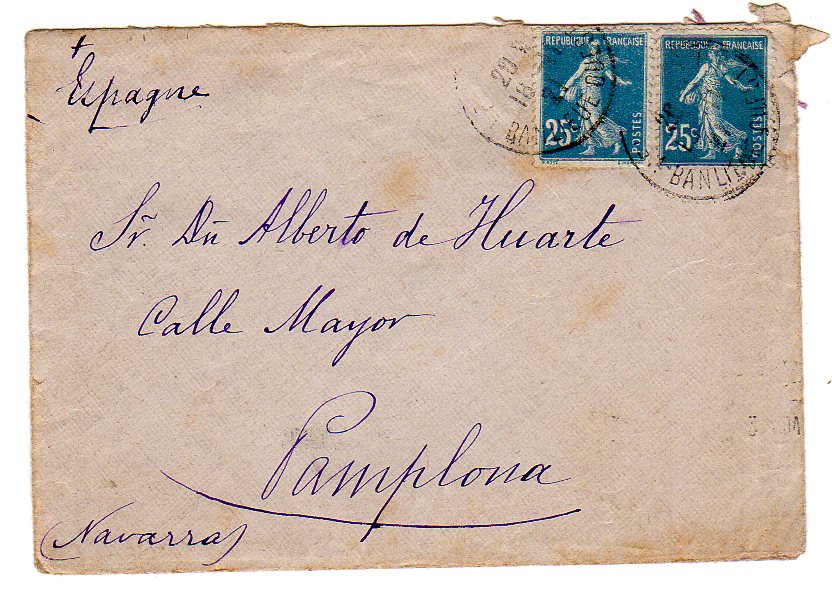 Espagne
REPUBLIQUE FRANÇAISE
25c
POSTES
REPUBLIQUE FRANÇAISE
25c
POSTES
BANLIEUE
BANLIEUE
Sr. Dn Alberto de Huarte
Calle Mayor
Pamplona
(Navarra)